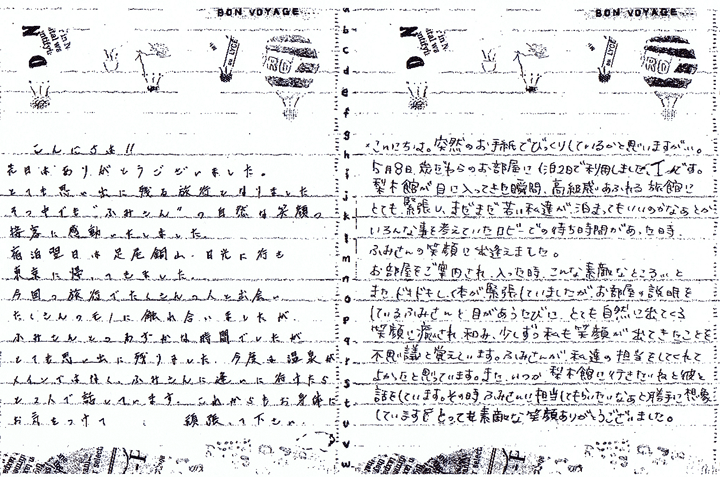 BON VOYAGE
こんにちは!!
先日はありがとうございました。
とても思い出に残る旅行となりました
そっけくも"ふみさん"の自然な笑顔の
接客に感動いたしました。
宿泊翌日は足尾銅山、日光に行き
東京に帰ってきました。
今回の旅行でたくさんの人と出会い
たくさんのモノに触れ合いましたが
ふみさんとのわずかな時間でしたが
とても思い出に残りました。今度は温泉が
メインではなく、ふみさんに逢いに行きたら
と2人で話しています。これからもお身体に
お気をつけて 頑張って下さい。
BON VOYAGE
こんにちは。突然のお手紙でびっくりしているかと思いますがい。
5月8日 のお部屋に1泊2日で利用しました、 です。
梨木館が目に入ってきた瞬間、高級感あふれる旅館に
とても緊張し、まだまだ若い私達が泊まってもいいのかなぁとか
いろんな事を考えていたロビーでの待ち時間があった時、
ふみさんの笑顔に出逢えました。
お部屋をご案内され、入った時、こんな素敵なところ、と
また、ドキドキして体が緊張していましたがお部屋の説明を
しているふみさんと目があうたびに、とても自然に出てくる
笑顔に癒され、和み、少しずつ私も笑顔が出てきたことを
不思議と覚えています。ふみさんが私達の担当をしてくれて
よかったと思っています。また、いつか梨木館に行きたいねと彼と
話をしています。その時ふみさんに担当してもらいたいなぁと勝手に想像
しています。とっても素敵な笑顔ありがとうございました。